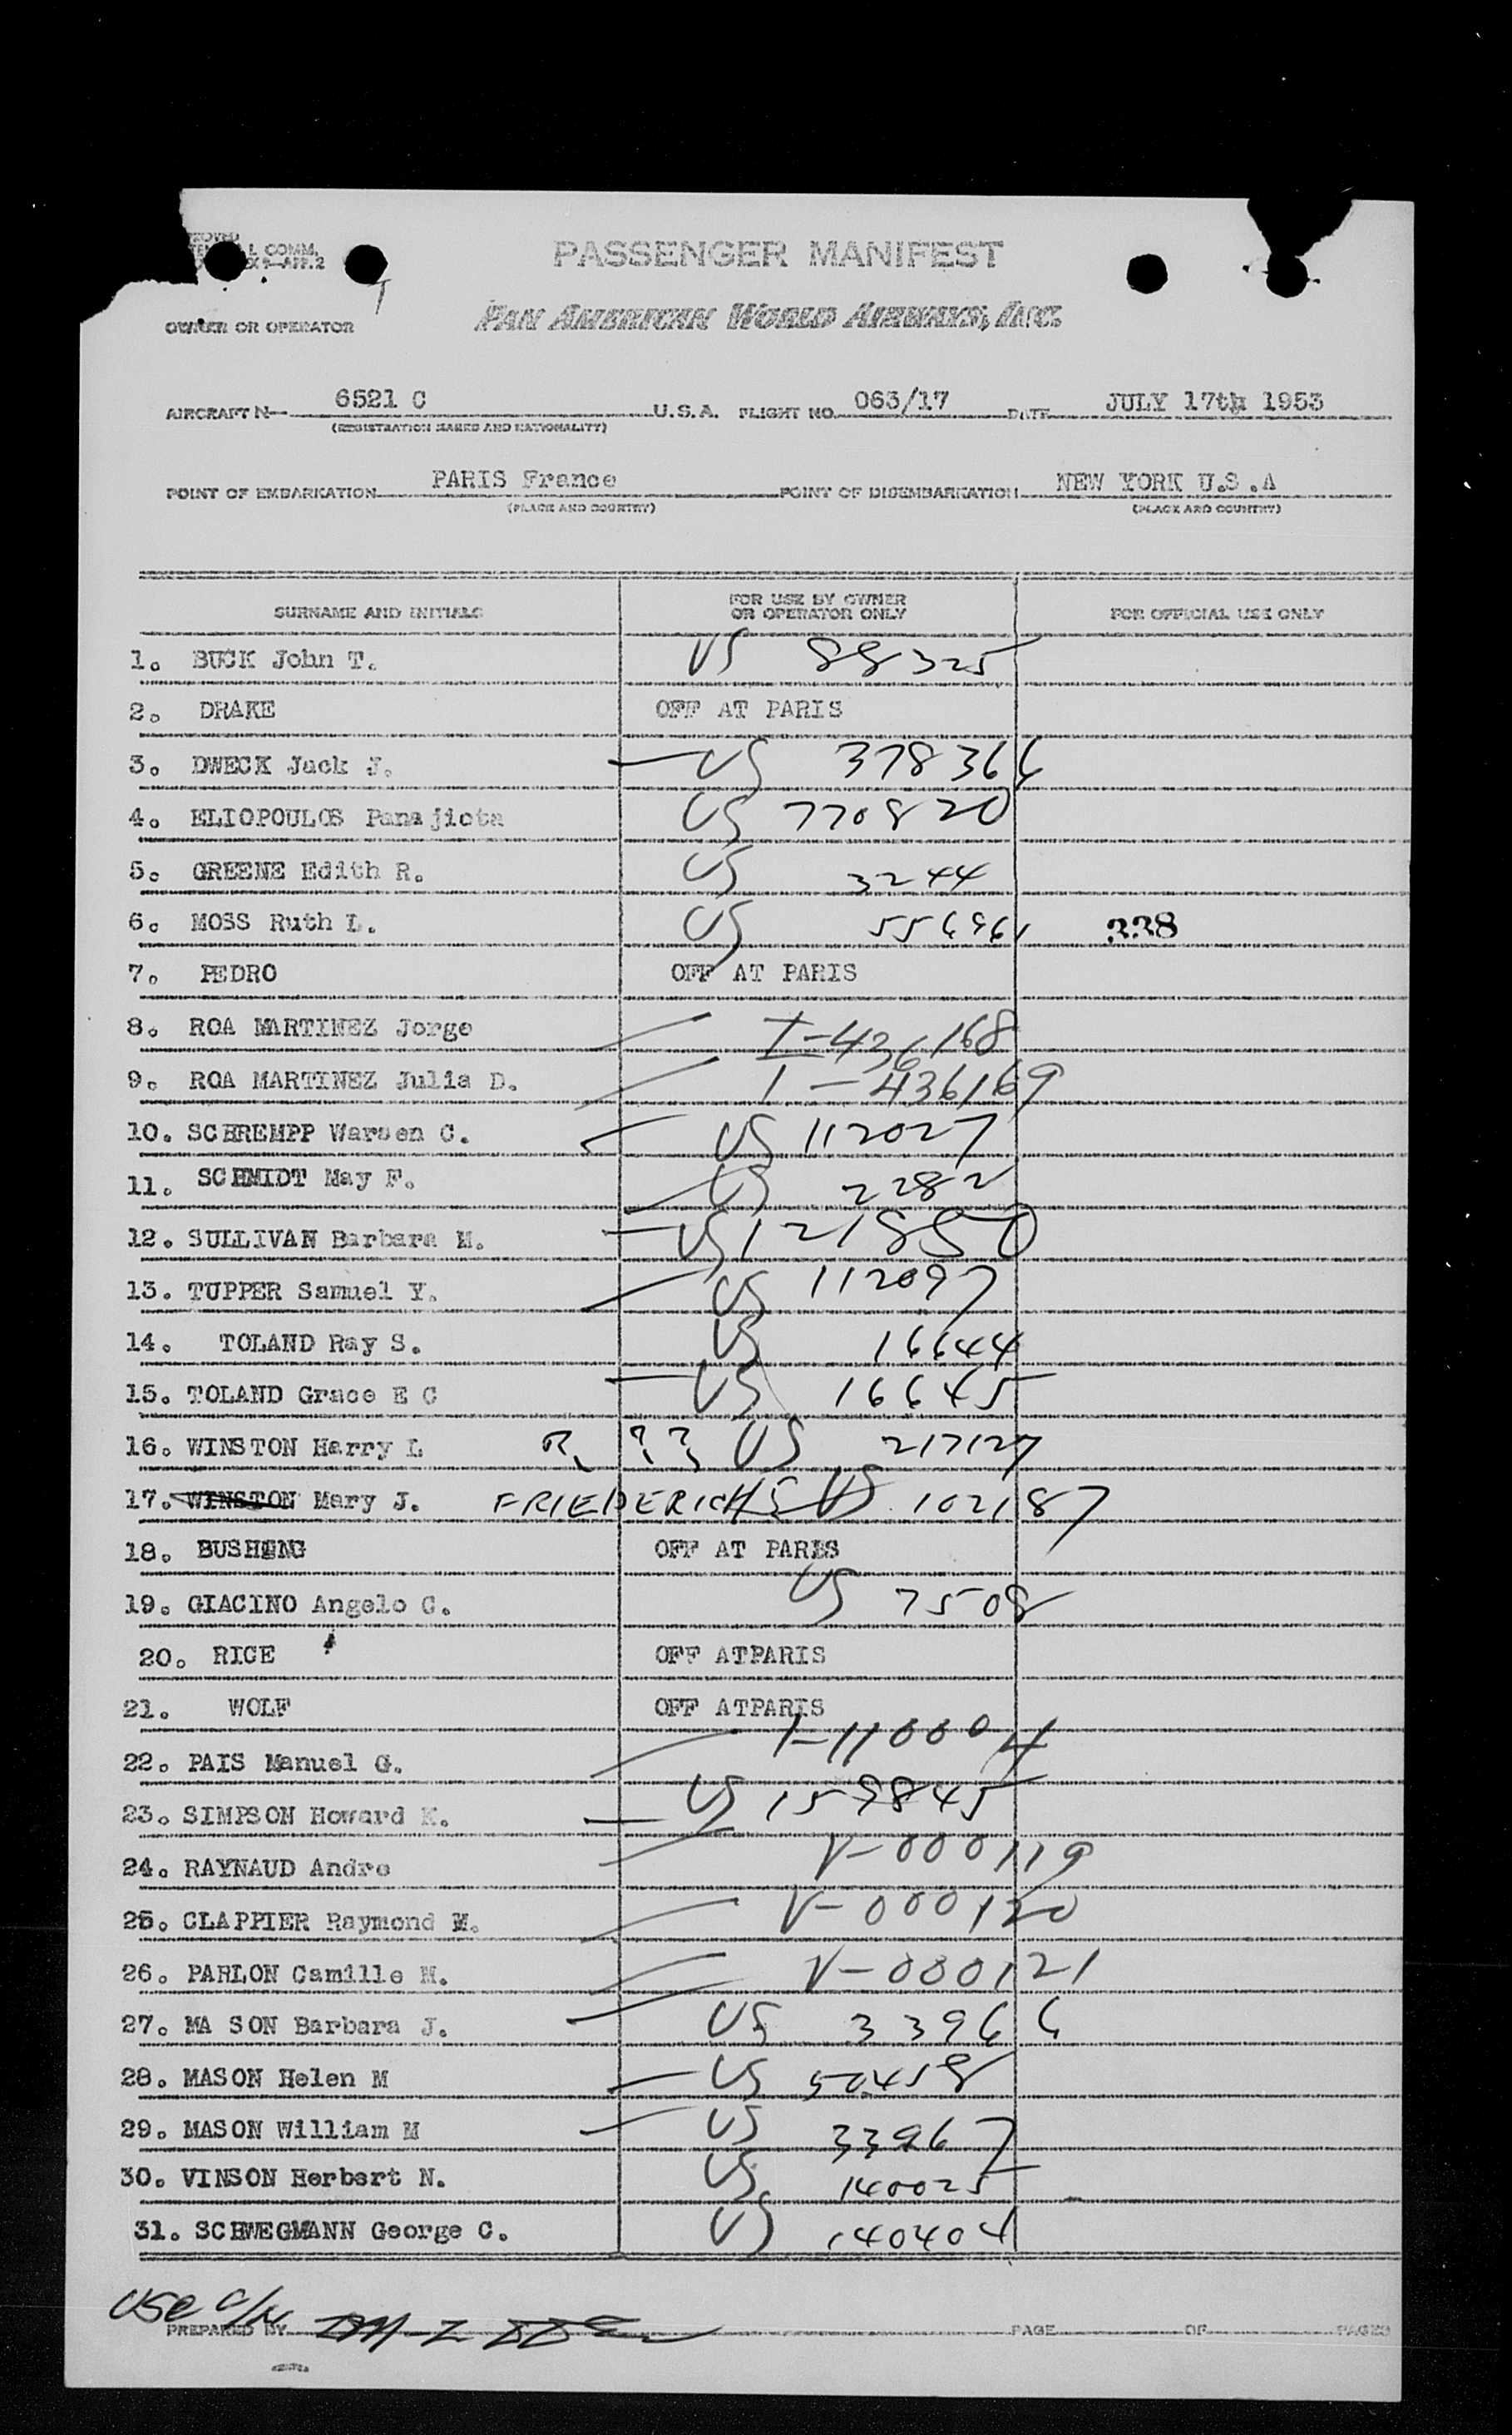 PASSENGER MANIFEST
PAN AMERICAN WORLD AIRWAYS, INC.
COMM.
APP.2
OWNER OR OPERATOR
AIRCRAFT N- 6521 C U.S.A. FLIGHT NO. 063/17 DATE JULY 17th 1953
(REGISTRATION MARKS AND NATIONALITY)
POINT OF EMBARKATION PARIS France POINT OF DISEMBARKATION NEW YORK U.S.A
(PLACE AND COUNTRY) (PLACE AND COUNTRY)
SURNAME AND INITIALS FOR USE BY OWNER OR OPERATOR ONLY FOR OFFICIAL USE ONLY
1. BUCK John T. US 88325
2. DRAKE OFF AT PARIS
3. DWECK Jack J. US 378366
4. ELIOPOULOS Panajiota US 770820
5. GREENE Edith R. US 3244
6. MOSS Ruth L. US 338
7. PEDRO OFF AT PARIS
8. ROA MARTINEZ Jorge I-436168
9. ROA MARTINEZ Julia D. I-436169
10. SCHREMPP Warsen C. US 112027
11. SCHMIDT May F. US 2282
12. SULLIVAN Barbara M. US 121850
13. TUPPER Samuel Y. US 112097
14. TOLAND Ray S. US 16644
15. TOLAND Grace E C US 16645
16. WINSTON Harry L R ?? US 217127
17. WINSTON Mary J. FRIEDERICHS US 102187
18. BUSHENG OFF AT PARIS
19. GIACINO Angelo C. US 7508
20. RICE OFF ATPARIS
21. WOLF OFF ATPARIS
22. PAIS Manuel G. I-110004
23. SIMPSON Howard K. US 159845
24. RAYNAUD Andre V-000119
25. CLAPPIER Raymond M. V-000120
26. PARLON Camille M. V-000121
27. MA SON Barbara J. US 33966
28. MASON Helen M US 50458
29. MASON William M US 33967
30. VINSON Herbert N. US 140025
31. SCHWEGMANN George C. US 140404
USC
PREPARED BY PAGE OF PAGES